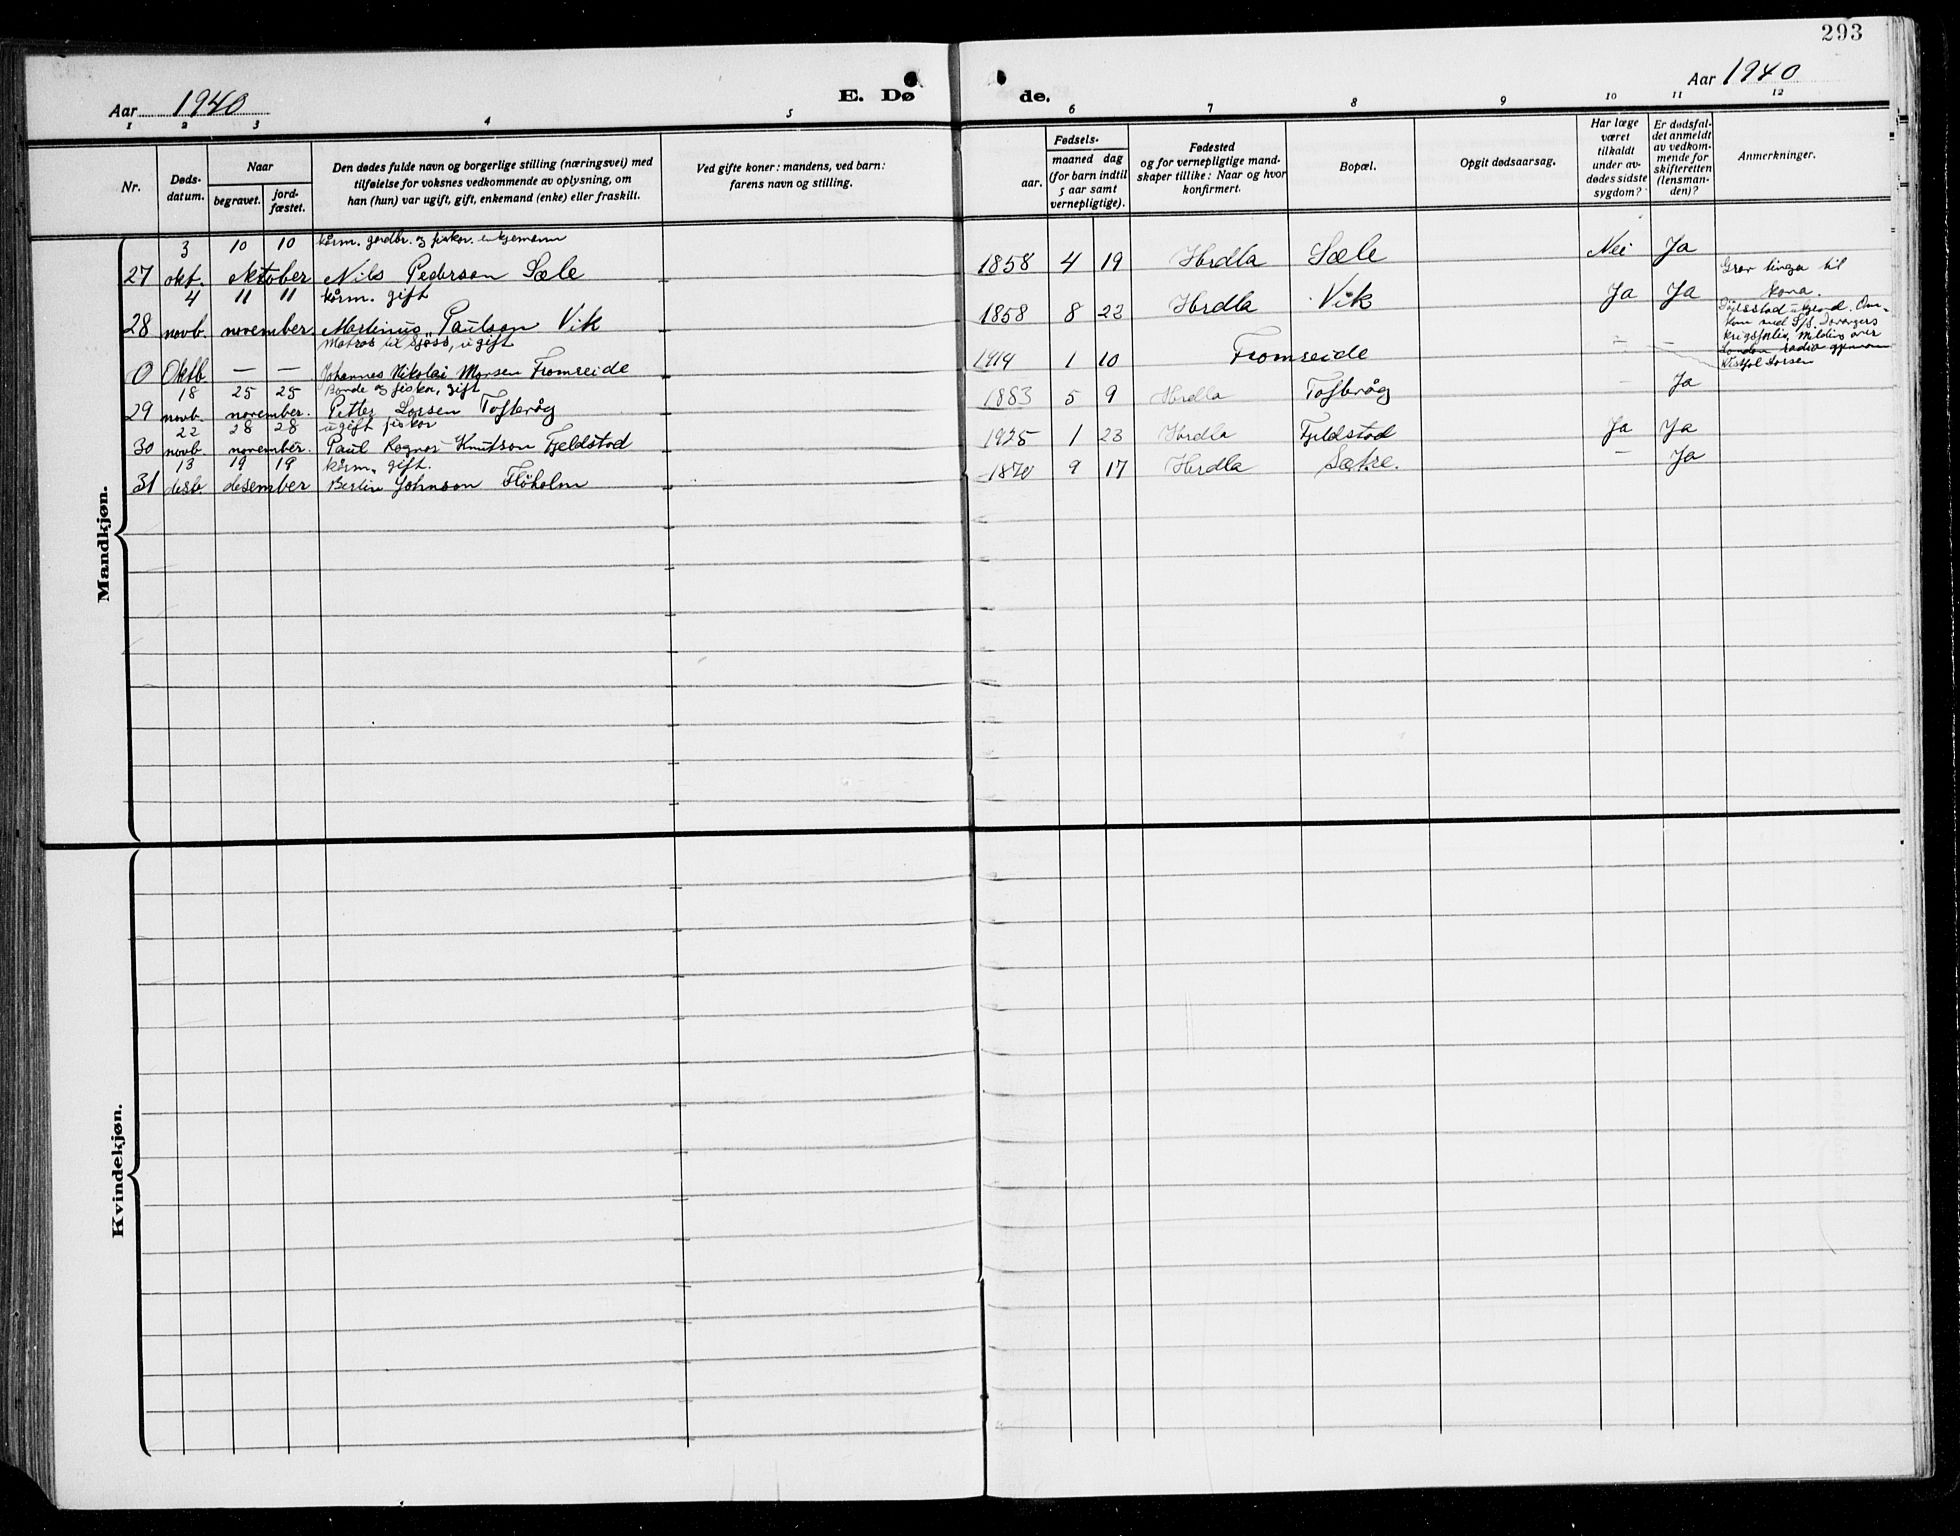 293
Aar 1940
E. Dø
de.
Aar 1940
1 2 3 4 5 6 7 8 9 10 11 12
Nr.
Døds-
datum.
Naar
begravet.
jord-
fæstet.
Den dødes fulde navn og borgerlige stilling (næringsvei) med
tilføielse for voksnes vedkommende av oplysning, om
han (hun) var ugift, gift, enkemand (enke) eller fraskilt.
Ved gifte koner: mandens, ved barn:
farens navn og stilling.
Fødsels-
aar.
maaned dag
(for barn indtil
5 aar samt
vernepligtige).
Fødested
og for vernepligtige mand-
skaper tillike: Naar og hvor
konfirmert.
Bopæl.
Opgit dødsaarsag.
Har læge
været
tilkaldt
under av-
dødes sidste
sygdom?
Er dødsfal-
det anmeldt
av vedkom-
mende for
skifteretten
(lensman-
den)?
Anmerkninger.
Mandkjøn.
3 10 10 kårm. gardbr. og fiskar. enkjemann
27 okt. oktober Nils Pederson Sæle 1858 4 19 Herdla Sæle Nei Ja
4 11 11 kårm. gift
28 novb. november Martinus Paulson Vik 1858 8 22 Herdla Vik Ja Ja
Grav tinga til
kona.
Matros til sjøss, ugift
0 Oktb. — — Johannes Nikolai Monsen Fromreide 1919 1 10 Fromreide — —
18 25 25 Bonde og fiskar, gift
29 novb. november. Petter Larsen Tofteråg 1883 5 9 Herdla Tofteråg — Ja
22 28 28 ugift fiskar
30 novb. november. Paul Ragnar Knutson Fjeldstad 1925 1 23 Herdla Fjeldstad Ja Ja
13 19 19 kårm. gift.
31 desb. desember Bertin Johnson Flåholm 1870 9 17 Herdla Sætre. — Ja
Kvindekjøn.